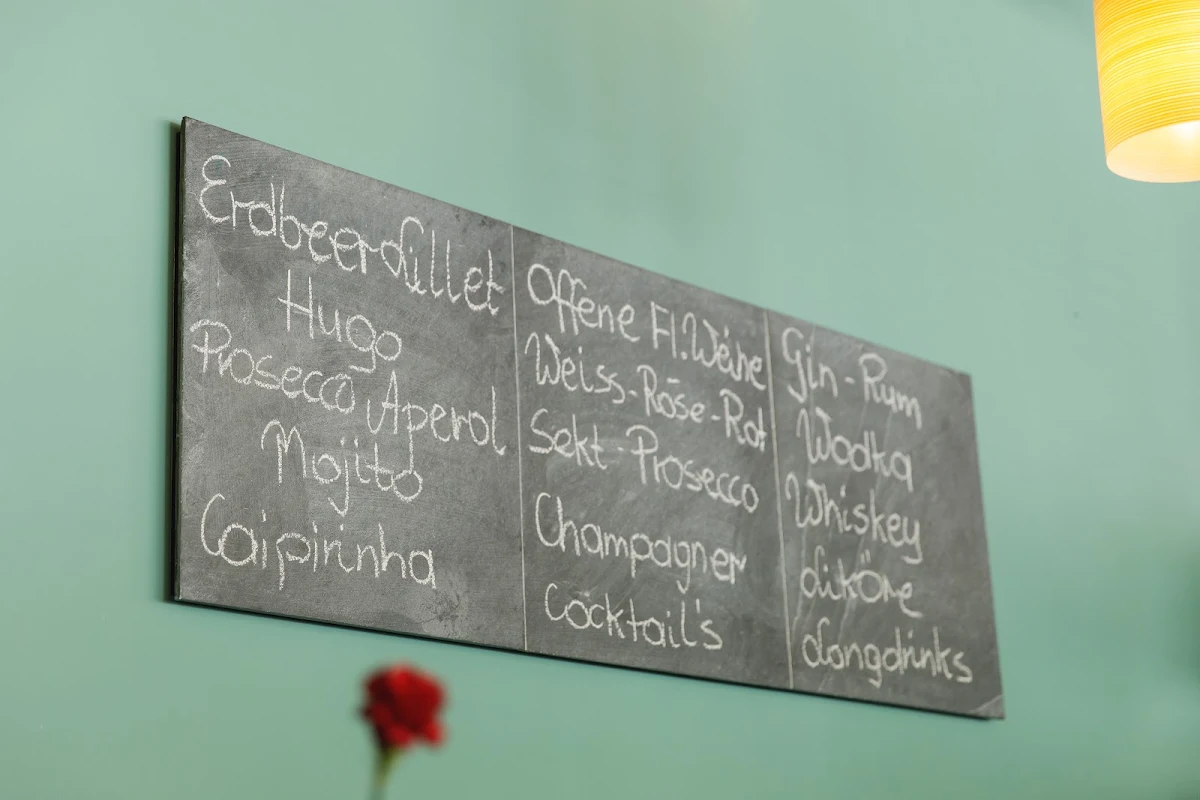 Erdbeer Lillet
Hugo
Prosecco Aperol
Mojito
Caipirinha
Offene Fl. Weine
Weiss-Rose-Rot
Sekt-Prosecco
Champagner
Cocktail's
Gin-Rum
Wodka
Whiskey
Liköre
Longdrinks